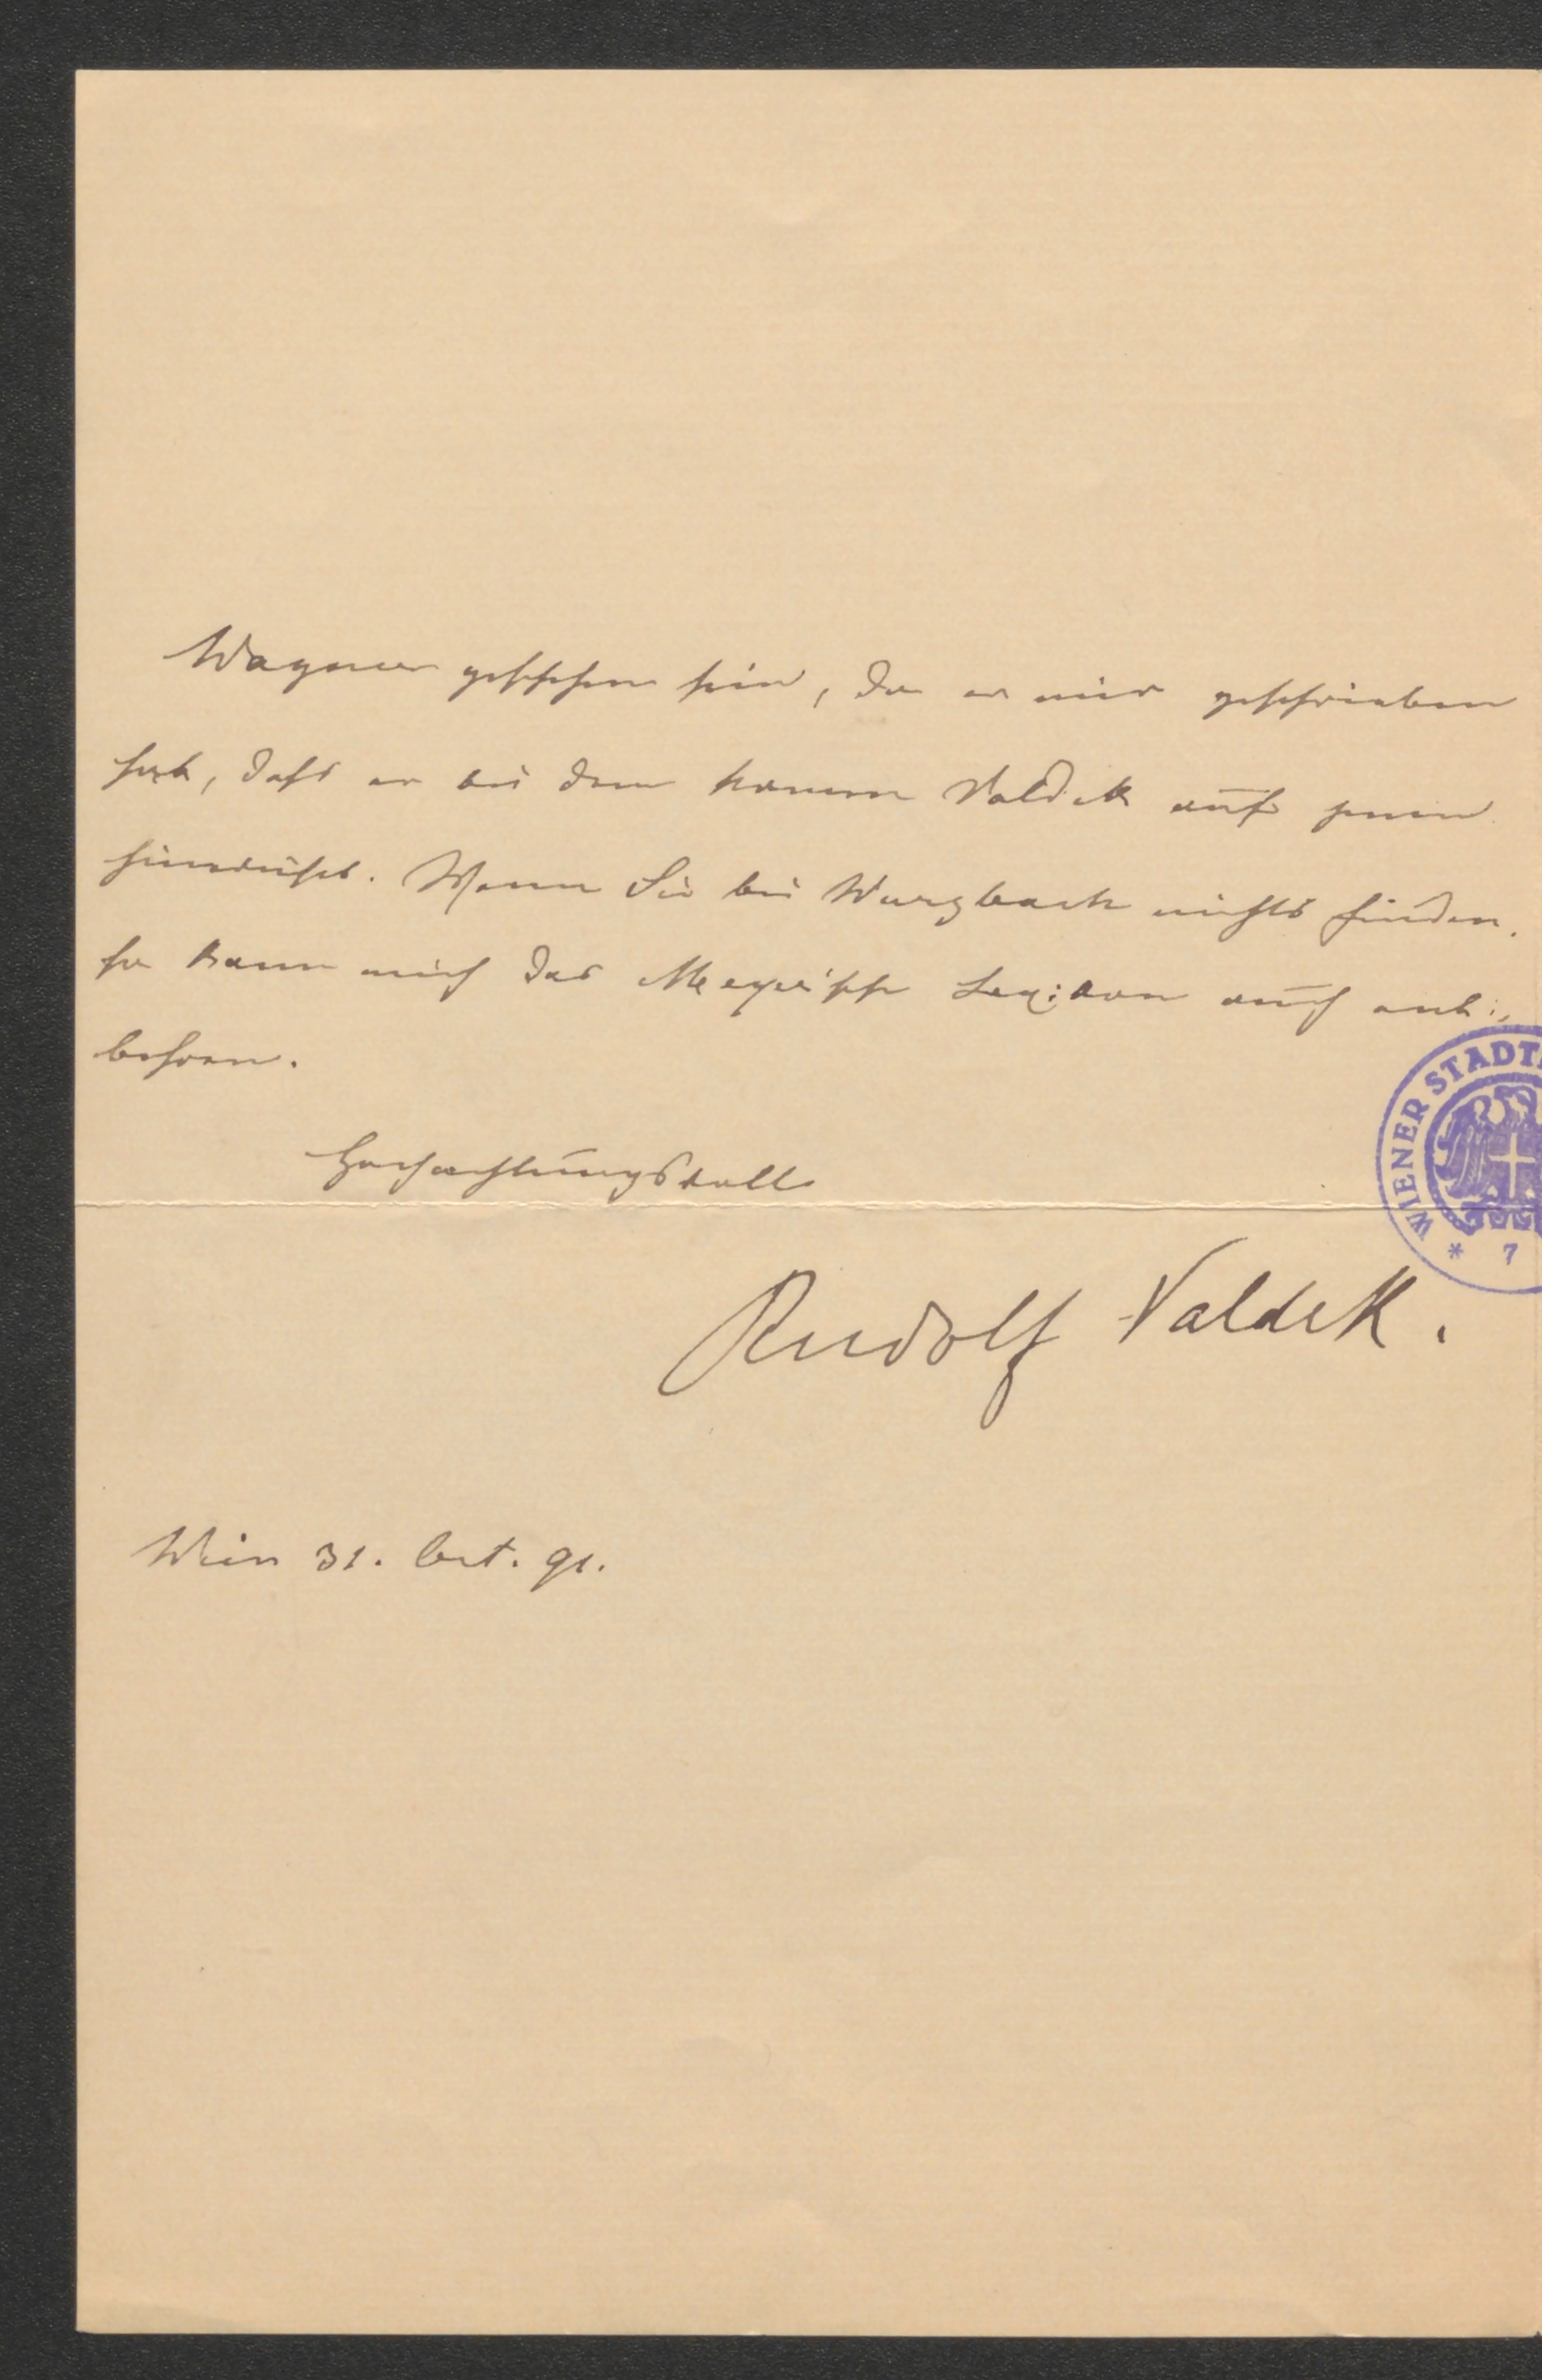 Wagner geschehen sein, da er mir geschrieben
hat, daß er bei dem Namen Valdek auf jenen
hinweist. Wenn Sie bei Wurzbach nichts finden,
so kann mich das Meyer'sche Lexikon auch ent-
behren.
Hochachtungsvoll
Rudolf Valdek.
Wien 31. Oct. 91.
WIENER STADT
* 7